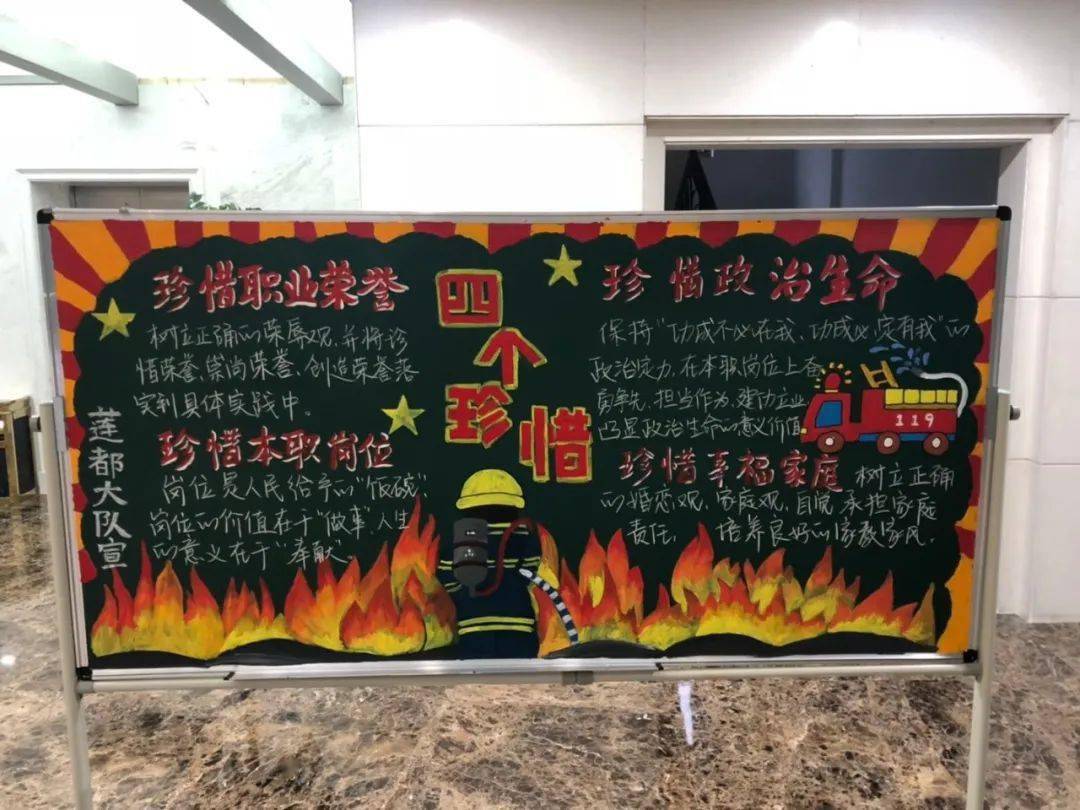 四个珍惜
珍惜职业荣誉
树立正确的荣辱观，并将珍
惜荣誉、崇尚荣誉、创造荣誉落
实到具体实践中。
珍惜本职岗位
岗位是人民给予的"饭碗"，
岗位的价值在于"做事"，人生
的意义在于"奉献"。
莲都大队宣
珍惜政治生命
保持"功成不必在我、功成必定有我"的
政治定力，在本职岗位上奋
勇争先，担当作为，建功立业
凸显政治生命的意义价值
119
珍惜幸福家庭
树立正确
的婚恋观、家庭观，自觉承担家庭
责任，培养良好的家教家风。